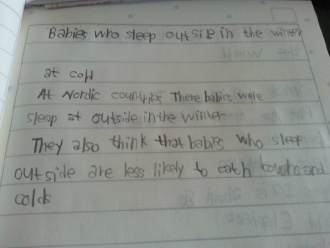 Babies who sleep outside in the winter
at cold
At Nordic countries There babies were
sleep at outside in the winter
They also think that babies who sleep
outside are less likely to catch coughs and
colds